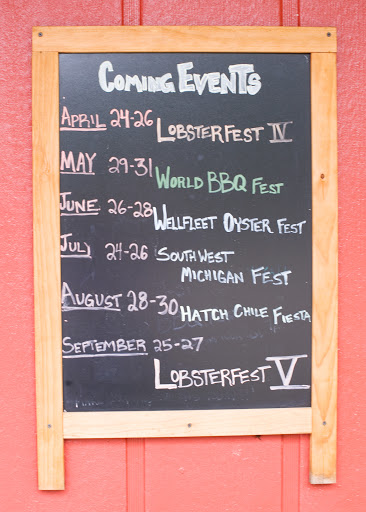 COMING EVENTS
APRIL 24-26
LOBSTERFEST IV
MAY 29-31
WORLD BBQ FEST
JUNE 26-28
WELLFLEET OYSTER FEST
JULY 24-26
SOUTHWEST
MICHIGAN FEST
AUGUST 28-30
HATCH CHILE FIESTA
SEPTEMBER 25-27
LOBSTERFEST V